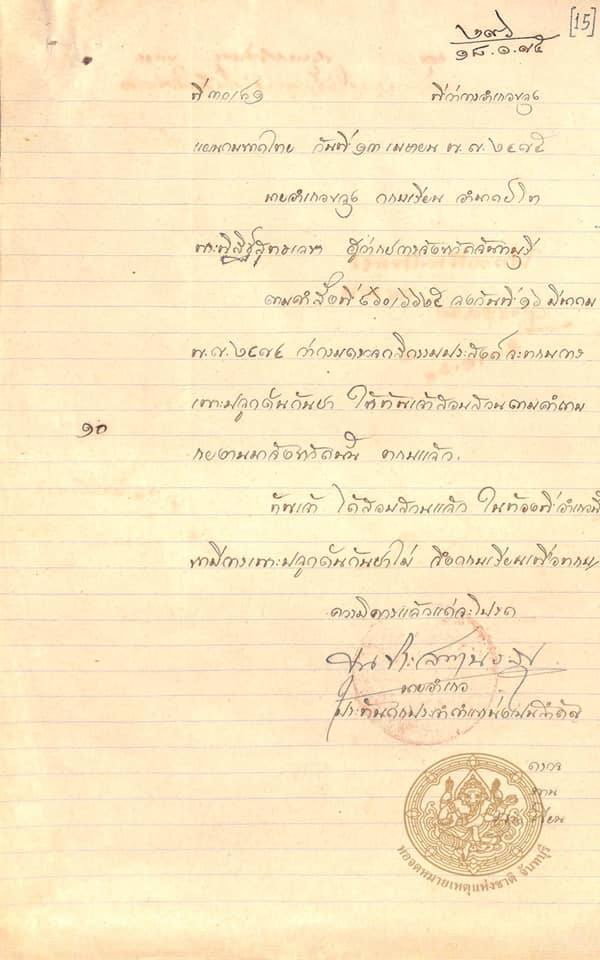 [15]
๒๗๖
๑๘.๑.๗๕
ที่ ๓๐/๔๑ ที่ว่าการอำเภอขลุง
แผนกมหาดไทย วันที่ ๑๓ เมษายน พ.ศ. ๒๔๗๕
นายอำเภอขลุง กราบเรียน อำมาตย์โท
พระพิสิษฐ์สุทธเลข ผู้ว่าราชการจังหวัดจันทบุรี
ตามคำสั่งที่ ลงวันที่ ๑๖ มีนาคม
พ.ศ. ๒๔๗๔ ว่ากรมตรวจกสิกรรมประสงค์จะทราบการ
เพาะปลูกต้นกันชา ให้ข้าพเจ้าสอบสวนตามคำถาม
รายงานมาจังหวัดนั้น ทราบแล้ว.
๑๐
ข้าพเจ้า ได้สอบสวนแล้ว ในท้องที่อำเภอนี้
หามีการเพาะปลูกต้นกันชาไม่ จึงกราบเรียนเพื่อทราบ
ควรมิควรแล้วแต่จะโปรด
นายอำเภอ
ประทับตราประจำตำแหน่งเป็นสำคัญ
ตรวจ
ทาน
เขียน
หอจดหมายเหตุแห่งชาติ จันทบุรี